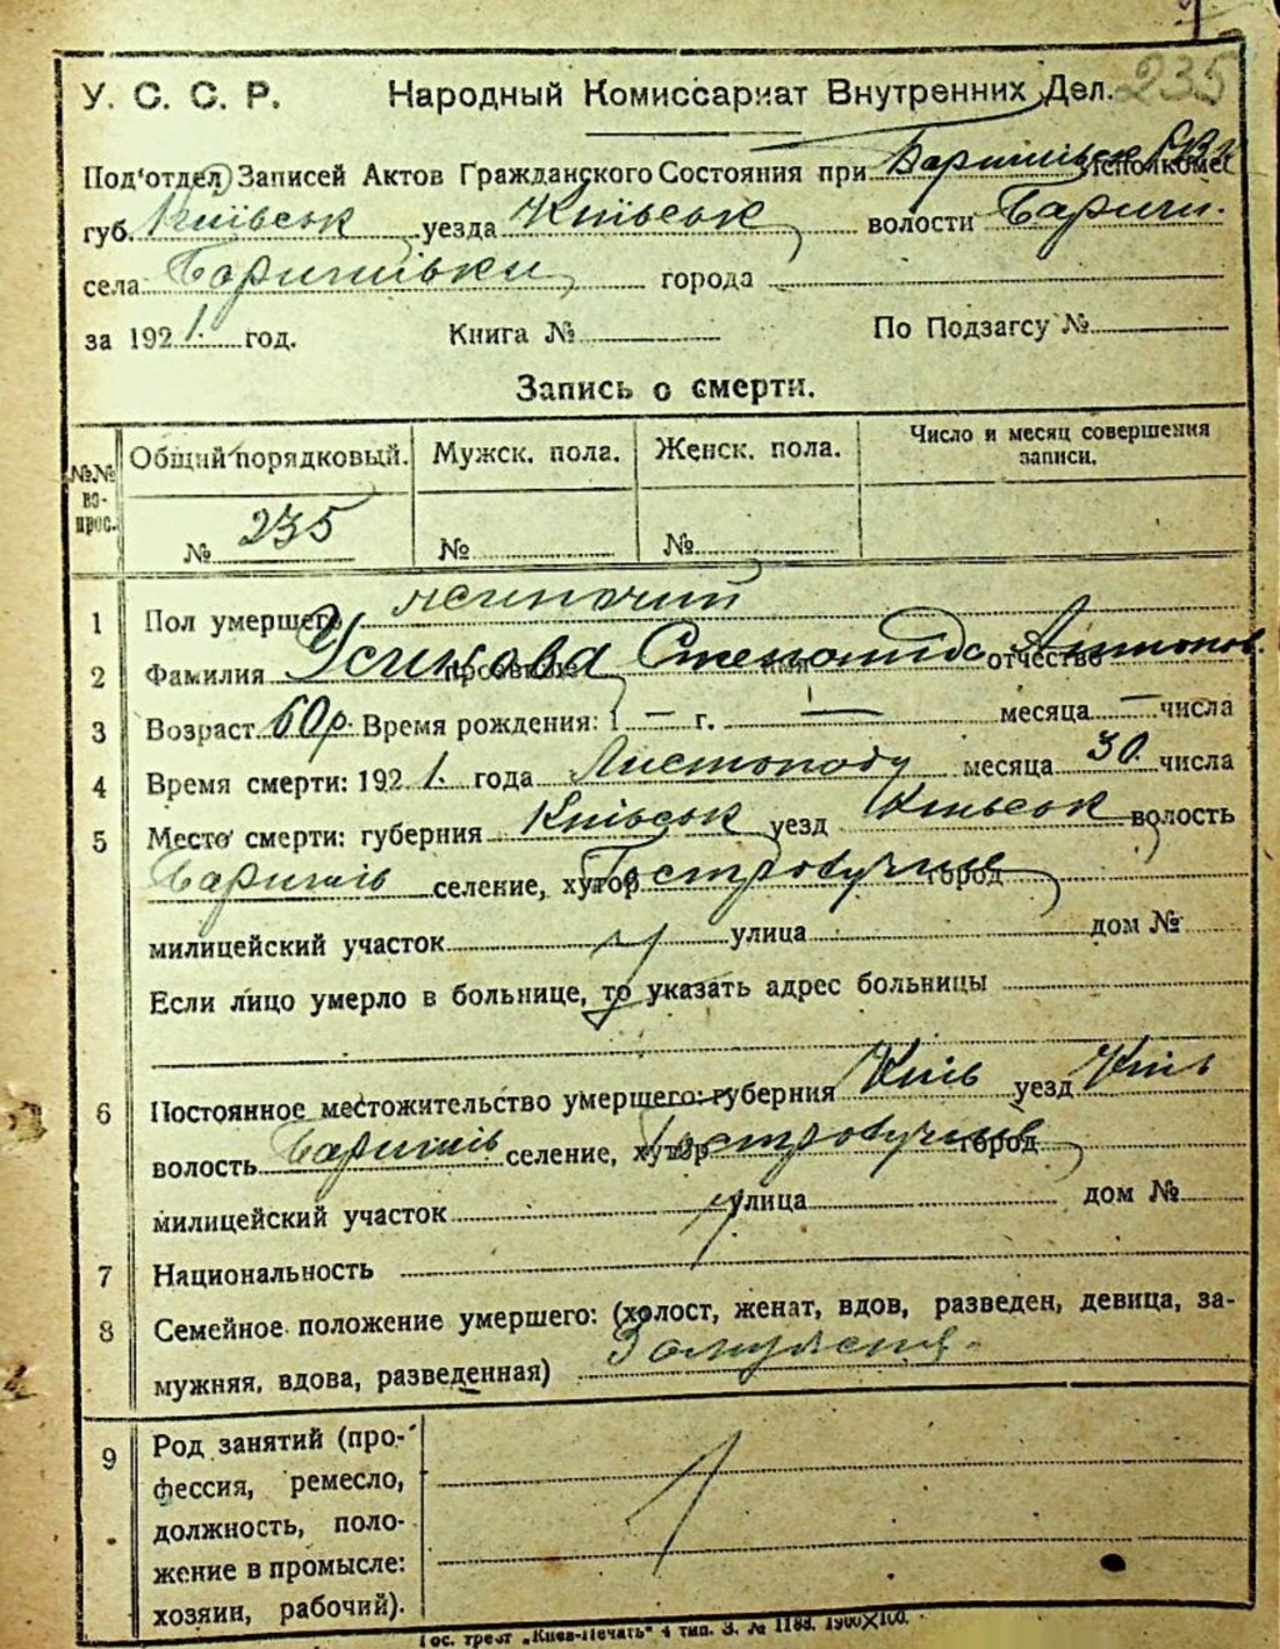 235
У. С. С. Р. Народный Комиссариат Внутренних Дел.
Под'отдел Записей Актов Гражданского Состояния при Баришівськ исполкоме
губ. Київськ уезда Київськ волости Бариш.
села Баришівки города
за 1921. год. Книга № По Подзагсу №
Запись о смерти.
№№ вопрос. Общий порядковый. Мужск. пола. Женск. пола. Число и месяц совершения записи.
№ 235 № №
1 Пол умершего жіночий
2 Фамилия Усикова прозвище имя Степанида отчество Антонов.
3 Возраст 60 р. Время рождения: 1 — г. — месяца — числа
4 Время смерти: 1921. года Листопаду месяца 30 числа
5 Место смерти: губерния Київськ уезд Київськ волость
Баришів селение, хутор город
милицейский участок улица дом №
Если лицо умерло в больнице, то указать адрес больницы
6 Постоянное местожительство умершего: губерния Київ уезд Київ
волость Баришів селение, хутор город
милицейский участок улица дом №
7 Национальность
8 Семейное положение умершего: (холост, женат, вдов, разведен, девица, за-
мужняя, вдова, разведенная) Замужня
9 Род занятий (про-
фессия, ремесло,
должность, поло-
жение в промысле:
хозяин, рабочий).
Гос. трест „Киев-Печать" 4 тип. З. № 1188. 1900×100.